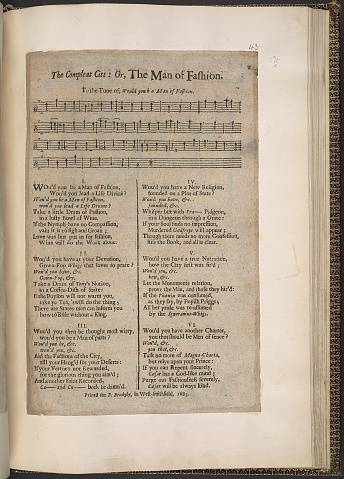 43
The Compleat Citt: Or, The Man of Fashion.
To the Tune of, Would you be a Man of Fashion.
I.
WOu'd you be a Man of Fashion,
Wou'd you lead a Life Divine?
Wou'd you be a Man of Fashion,
wou'd you lead a Life Divine?
Take a little Dram of Passion,
in a lusty Bowl of Wine,
If the Nymph have no Compassion,
vain it is to sigh and Groan;
Love was but put in for fashion,
Wine will do the Work alone.
II.
Wou'd you have at your Devotion,
Green-Fop Whigg that loves to prate?
Wou'd you have, &c.
Green-Fop, &c.
Take a Dram of Tony's Notion,
in a Coffee-Dish of State:
If the Poyson will not warm you,
take you Tea, 'twill do the thing;
There are States-men can inform you
how to Rule without a King.
III.
Wou'd you then be thought most witty,
wou'd you be a Man of parts?
Wou'd you be, &c.
wou'd you, &c.
Aid the Faction of the City,
till your Hang'd for your Deserts:
If your Vertues not Rewarded,
for the glorious thing you aim'd;
And another Saint Recorded,
Co—— and Co—— both be damn'd.
IV.
Wou'd you have a New Religion,
founded on a Plot of State?
Wou'd you have, &c.
founded, &c.
Whisper but with Pra—— Pidgeon,
in a Dungeon through a Grate:
If your Soul finds no impression,
Murdered Godfrye will appear;
Though there needs no more Confession,
kiss the Book, and all is clear.
V.
Wou'd you have a true Narration,
how the City first was fir'd;
Wou'd you, &c.
how, &c.
Let the Monuments relation,
prove the Man, and those they hir'd:
If the Phœnix was consumed,
as they say, by Popish Priggs;
All her pride was re-assumed
by the Ignoramus-Whigs.
VI.
Wou'd you have another Charter,
you that should be Men of sence?
Wou'd, &c.
you that, &c.
Talk no more of Magna-Charta,
but relye upon your Prince:
If you can Repent sincerely,
Cesar has a God-like mind;
Purge out Factiousness severely,
Cesar will be always kind.
Printed for P. Brooksby, in West-smithfield, 1683.